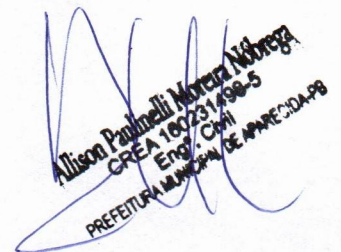 Allison Paulinelli Moreira Nóbrega
CREA 160231498-5
Engº. Civil
PREFEITURA MUNICIPAL DE APARECIDA-PB